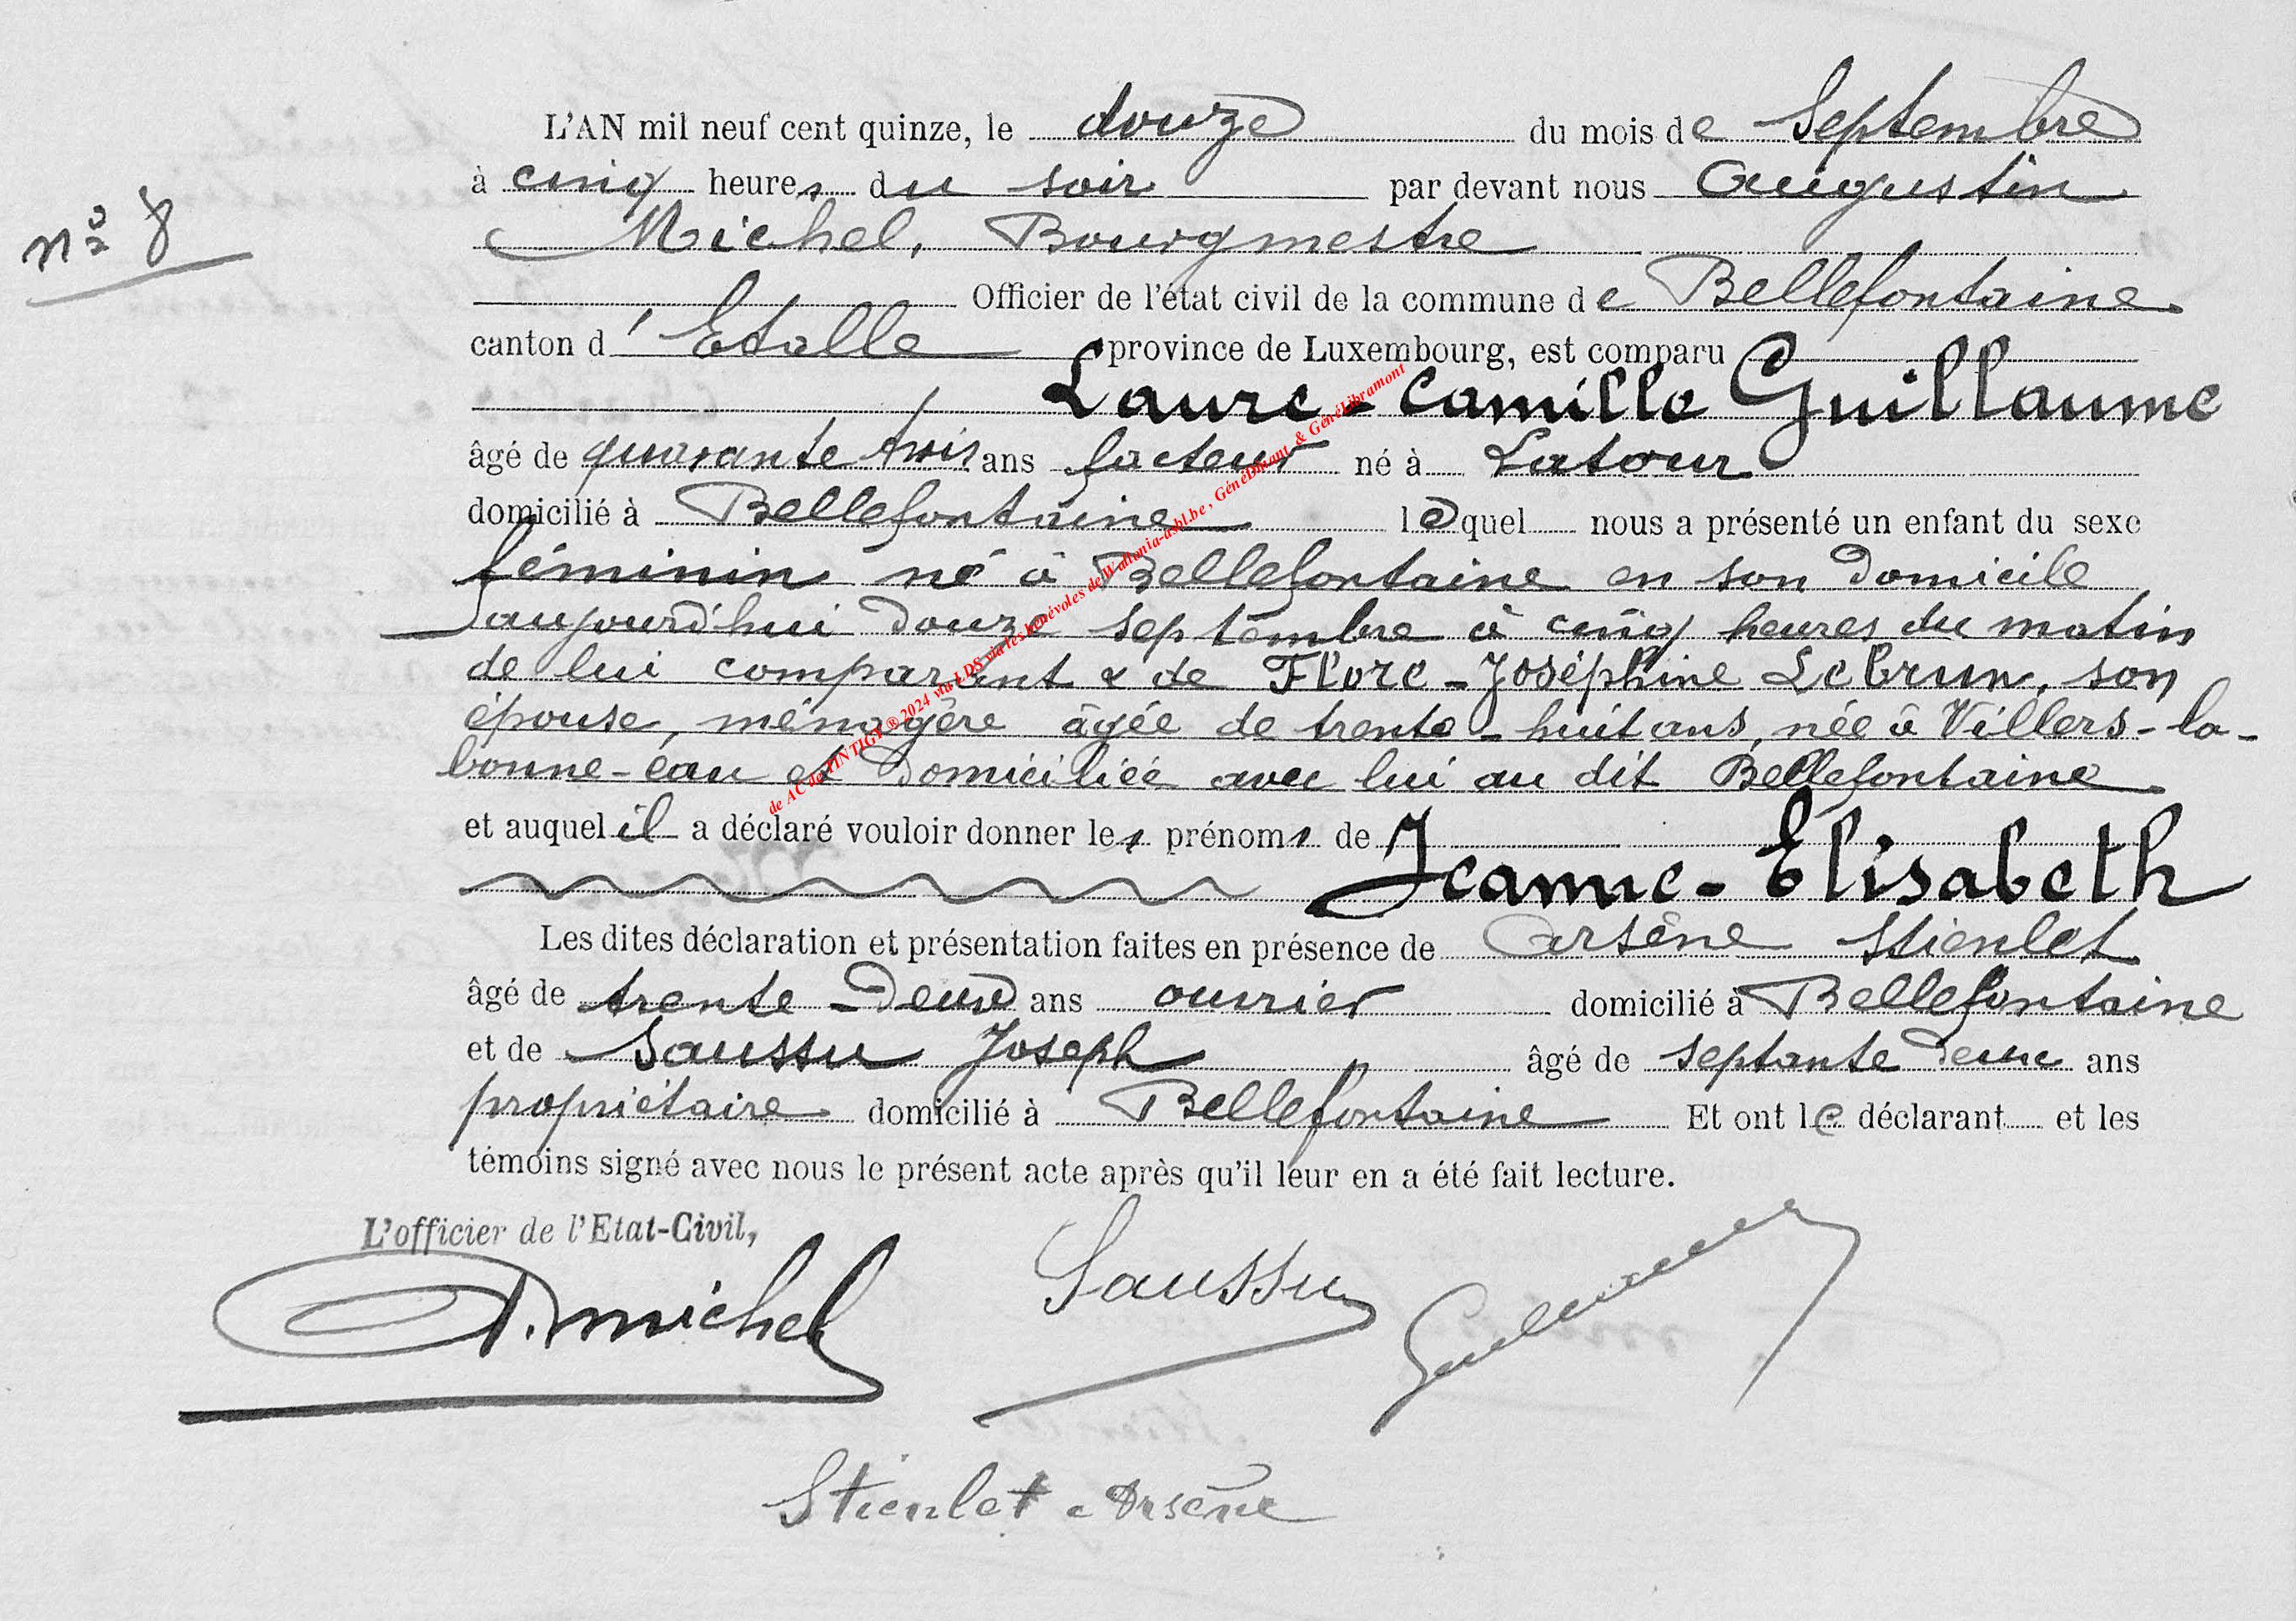 n° 8
L'AN mil neuf cent quinze, le douze du mois de Septembre
à cinq heures du soir par devant nous Augustin
Michel, Bourgmestre
Officier de l'état civil de la commune de Bellefontaine
canton d'Etalle province de Luxembourg, est comparu
Laure-Camille Guillaume
âgé de quarante trois ans facteur né à Latour
domicilié à Bellefontaine lequel nous a présenté un enfant du sexe
féminin né à Bellefontaine en son domicile
aujourd'hui douze septembre à cinq heures du matin
de lui comparant & de Flore-Joséphine Lebrun, son
épouse, ménagère âgée de trente-huit ans, née à Villers-la-
bonne-eau et domiciliée avec lui au dit Bellefontaine
et auquel il a déclaré vouloir donner les prénoms de
Jeanne-Elisabeth
Les dites déclaration et présentation faites en présence de Arsène Stienlet
âgé de trente-deux ans ouvrier domicilié à Bellefontaine
et de Saussu Joseph âgé de septante deux ans
propriétaire domicilié à Bellefontaine Et ont le déclarant et les
témoins signé avec nous le présent acte après qu'il leur en a été fait lecture.
L'officier de l'Etat-Civil,
A. Michel Saussu Guillaume
Stienlet Arsène
de AC de TINTIGY ® 2024 via LDS via les bénévoles de Wallonia-asbl.be, GénéDinant & GénéLibramont